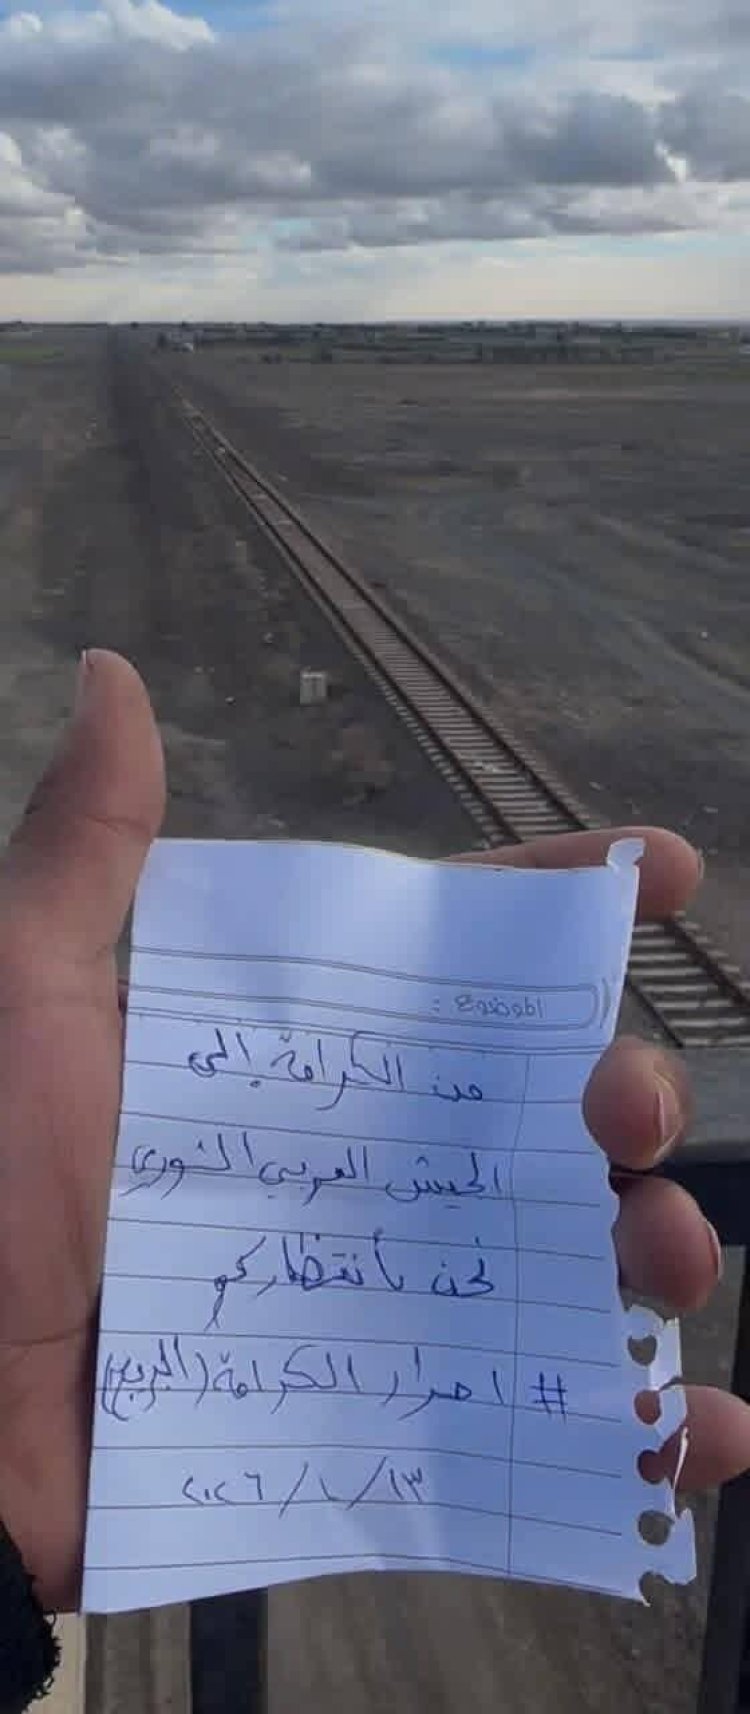 الموضوع :
من الكرامة إلى
الجيش العربي السوري
نحن بأنتظاركم
# احرار الكرامة
١٣/١/٢٠٢٦